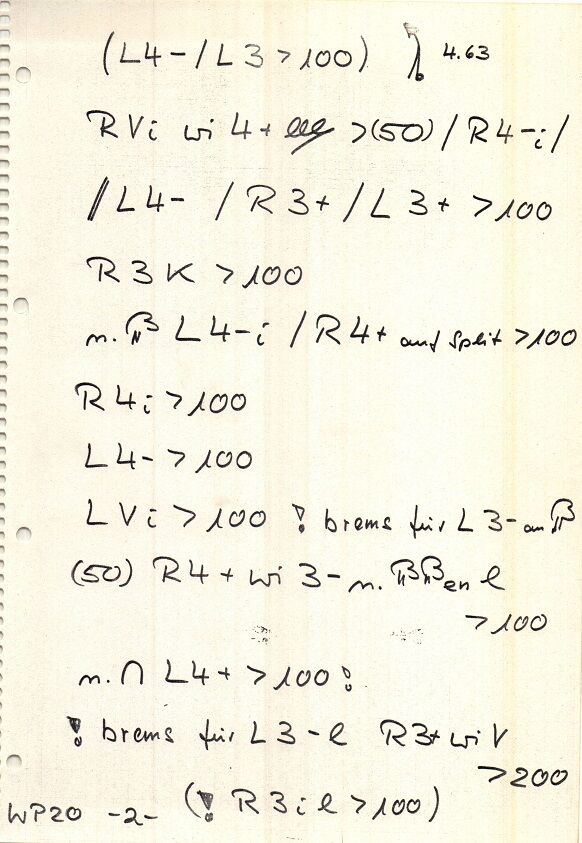 (L4-/L3>100) 4.63
RVi wi 4+ >(50)/R4-i/
//L4- /R3+/L3+ >100
R3K >100
n. L4-i /R4+ auf Split >100
R4i >100
L4- >100
LVi >100 ! brems für L3- an
(50) R4+ wi 3- n. en l
>100
n. ∩ L4+ >100 !
! brems für L3-l R3+ wi V
>200
WP20 -2- (! R3il >100)